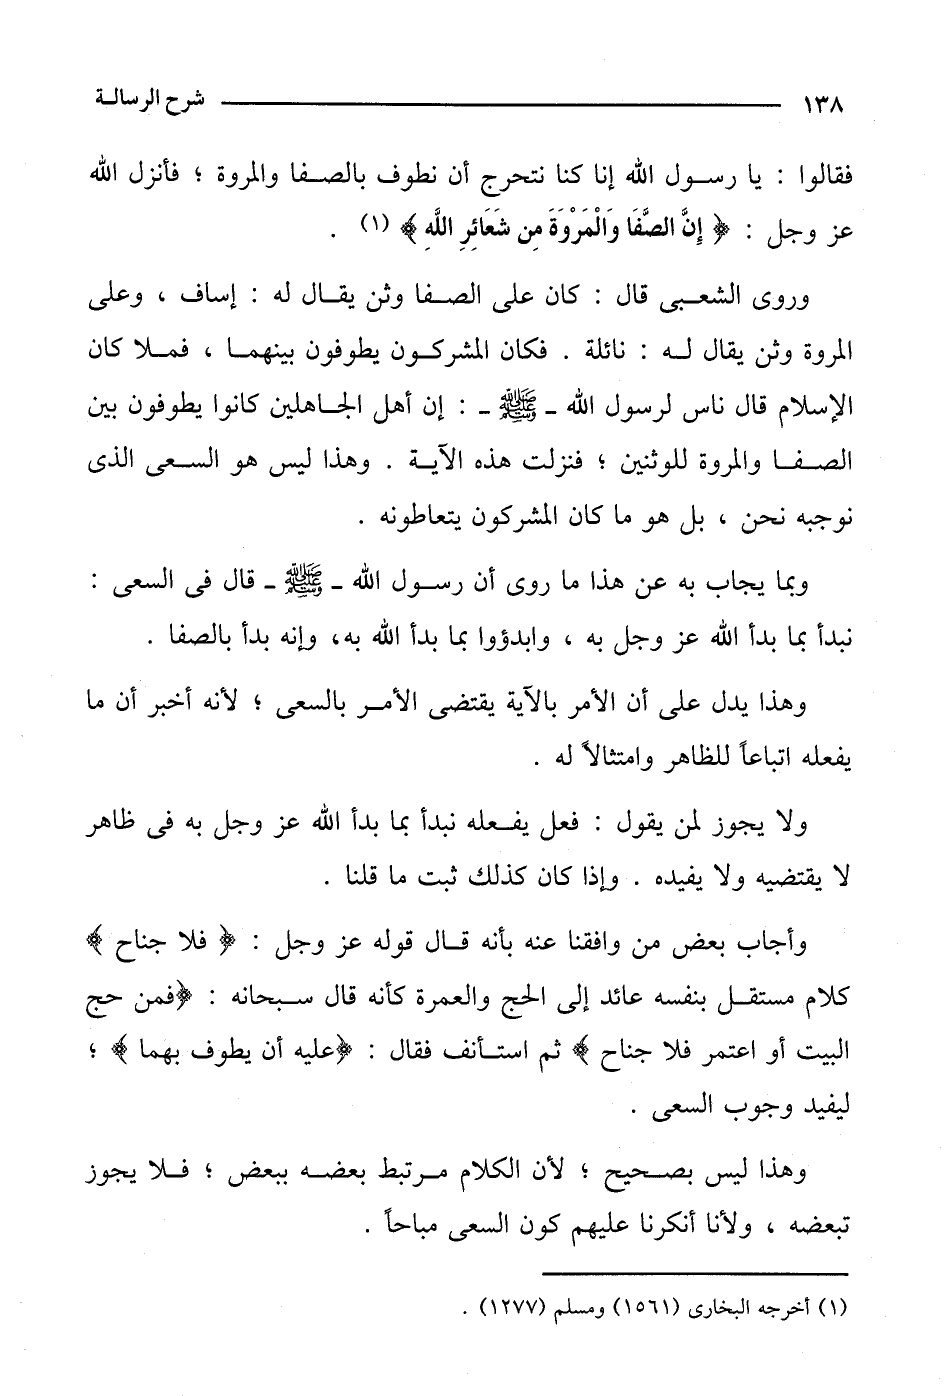 ١٣٨ شرح الرسالة
فقالوا : يا رسول الله إنا كنا نتحرج أن نطوف بالصفا والمروة ؛ فأنزل الله
عز وجل : ﴿ إِنَّ الصَّفَا وَالْمَرْوَةَ مِن شَعَائِرِ اللَّهِ ﴾ (١) .
وروى الشعبى قال : كان على الصفا وثن يقال له : إساف ، وعلى
المروة وثن يقال له : نائلة . فكان المشركون يطوفون بينهما ، فملا كان
الإسلام قال ناس لرسول الله ـ ﷺ ـ : إن أهل الجاهلين كانوا يطوفون بين
الصفا والمروة للوثنين ؛ فنزلت هذه الآية . وهذا ليس هو السعى الذى
نوجبه نحن ، بل هو ما كان المشركون يتعاطونه .
وبما يجاب به عن هذا ما روى أن رسول الله ـ ﷺ ـ قال فى السعى :
نبدأ بما بدأ الله عز وجل به ، وابدؤوا بما بدأ الله به، وإنه بدأ بالصفا .
وهذا يدل على أن الأمر بالآية يقتضى الأمر بالسعى ؛ لأنه أخبر أن ما
يفعله اتباعاً للظاهر وامتثالاً له .
ولا يجوز لمن يقول : فعل يفعله نبدأ بما بدأ الله عز وجل به فى ظاهر
لا يقتضيه ولا يفيده . وإذا كان كذلك ثبت ما قلنا .
وأجاب بعض من وافقنا عنه بأنه قال قوله عز وجل : ﴿ فلا جناح ﴾
كلام مستقل بنفسه عائد إلى الحج والعمرة كأنه قال سبحانه : ﴿فمن حج
البيت أو اعتمر فلا جناح ﴾ ثم استأنف فقال : ﴿عليه أن يطوف بهما ﴾ ؛
ليفيد وجوب السعى .
وهذا ليس بصحيح ؛ لأن الكلام مرتبط بعضه ببعض ؛ فلا يجوز
تبعضه ، ولأنا أنكرنا عليهم كون السعى مباحاً .
(١) أخرجه البخارى (١٥٦١) ومسلم (١٢٧٧) .